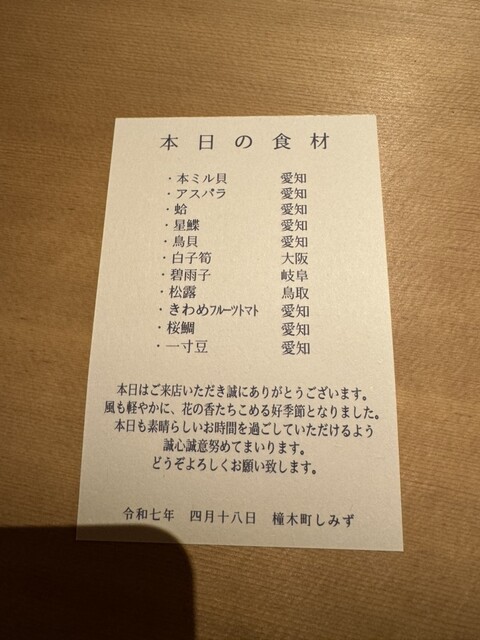 本日の食材
・本ミル貝 愛知
・アスパラ 愛知
・蛤 愛知
・星鰈 愛知
・鳥貝 愛知
・白子筍 大阪
・碧雨子 岐阜
・松露 鳥取
・きわめフルーツトマト 愛知
・桜鯛 愛知
・一寸豆 愛知
本日はご来店いただき誠にありがとうございます。
風も軽やかに、花の香たちこめる好季節となりました。
本日も素晴らしいお時間を過ごしていただけるよう
誠心誠意努めてまいります。
どうぞよろしくお願い致します。
令和七年 四月十八日 橦木町しみず